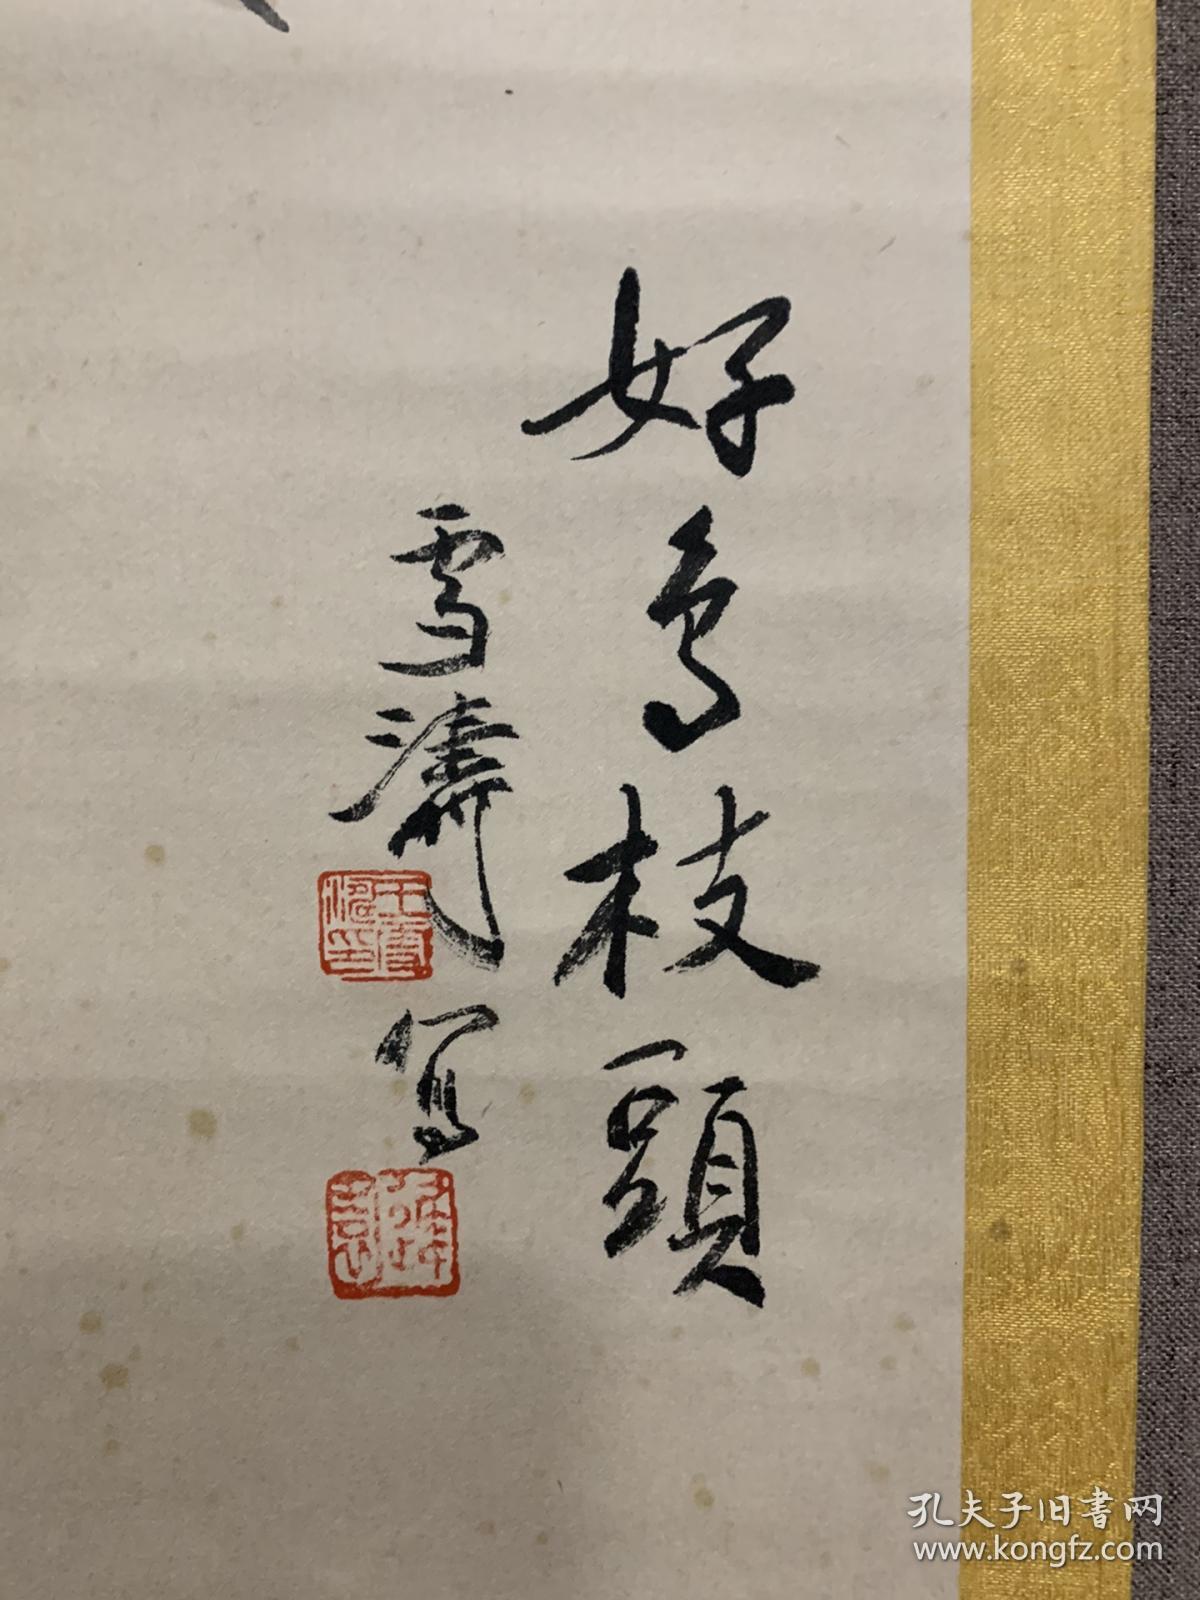 好鸟枝頭
雪濤寫
孔夫子旧書网
www.kongfz.com